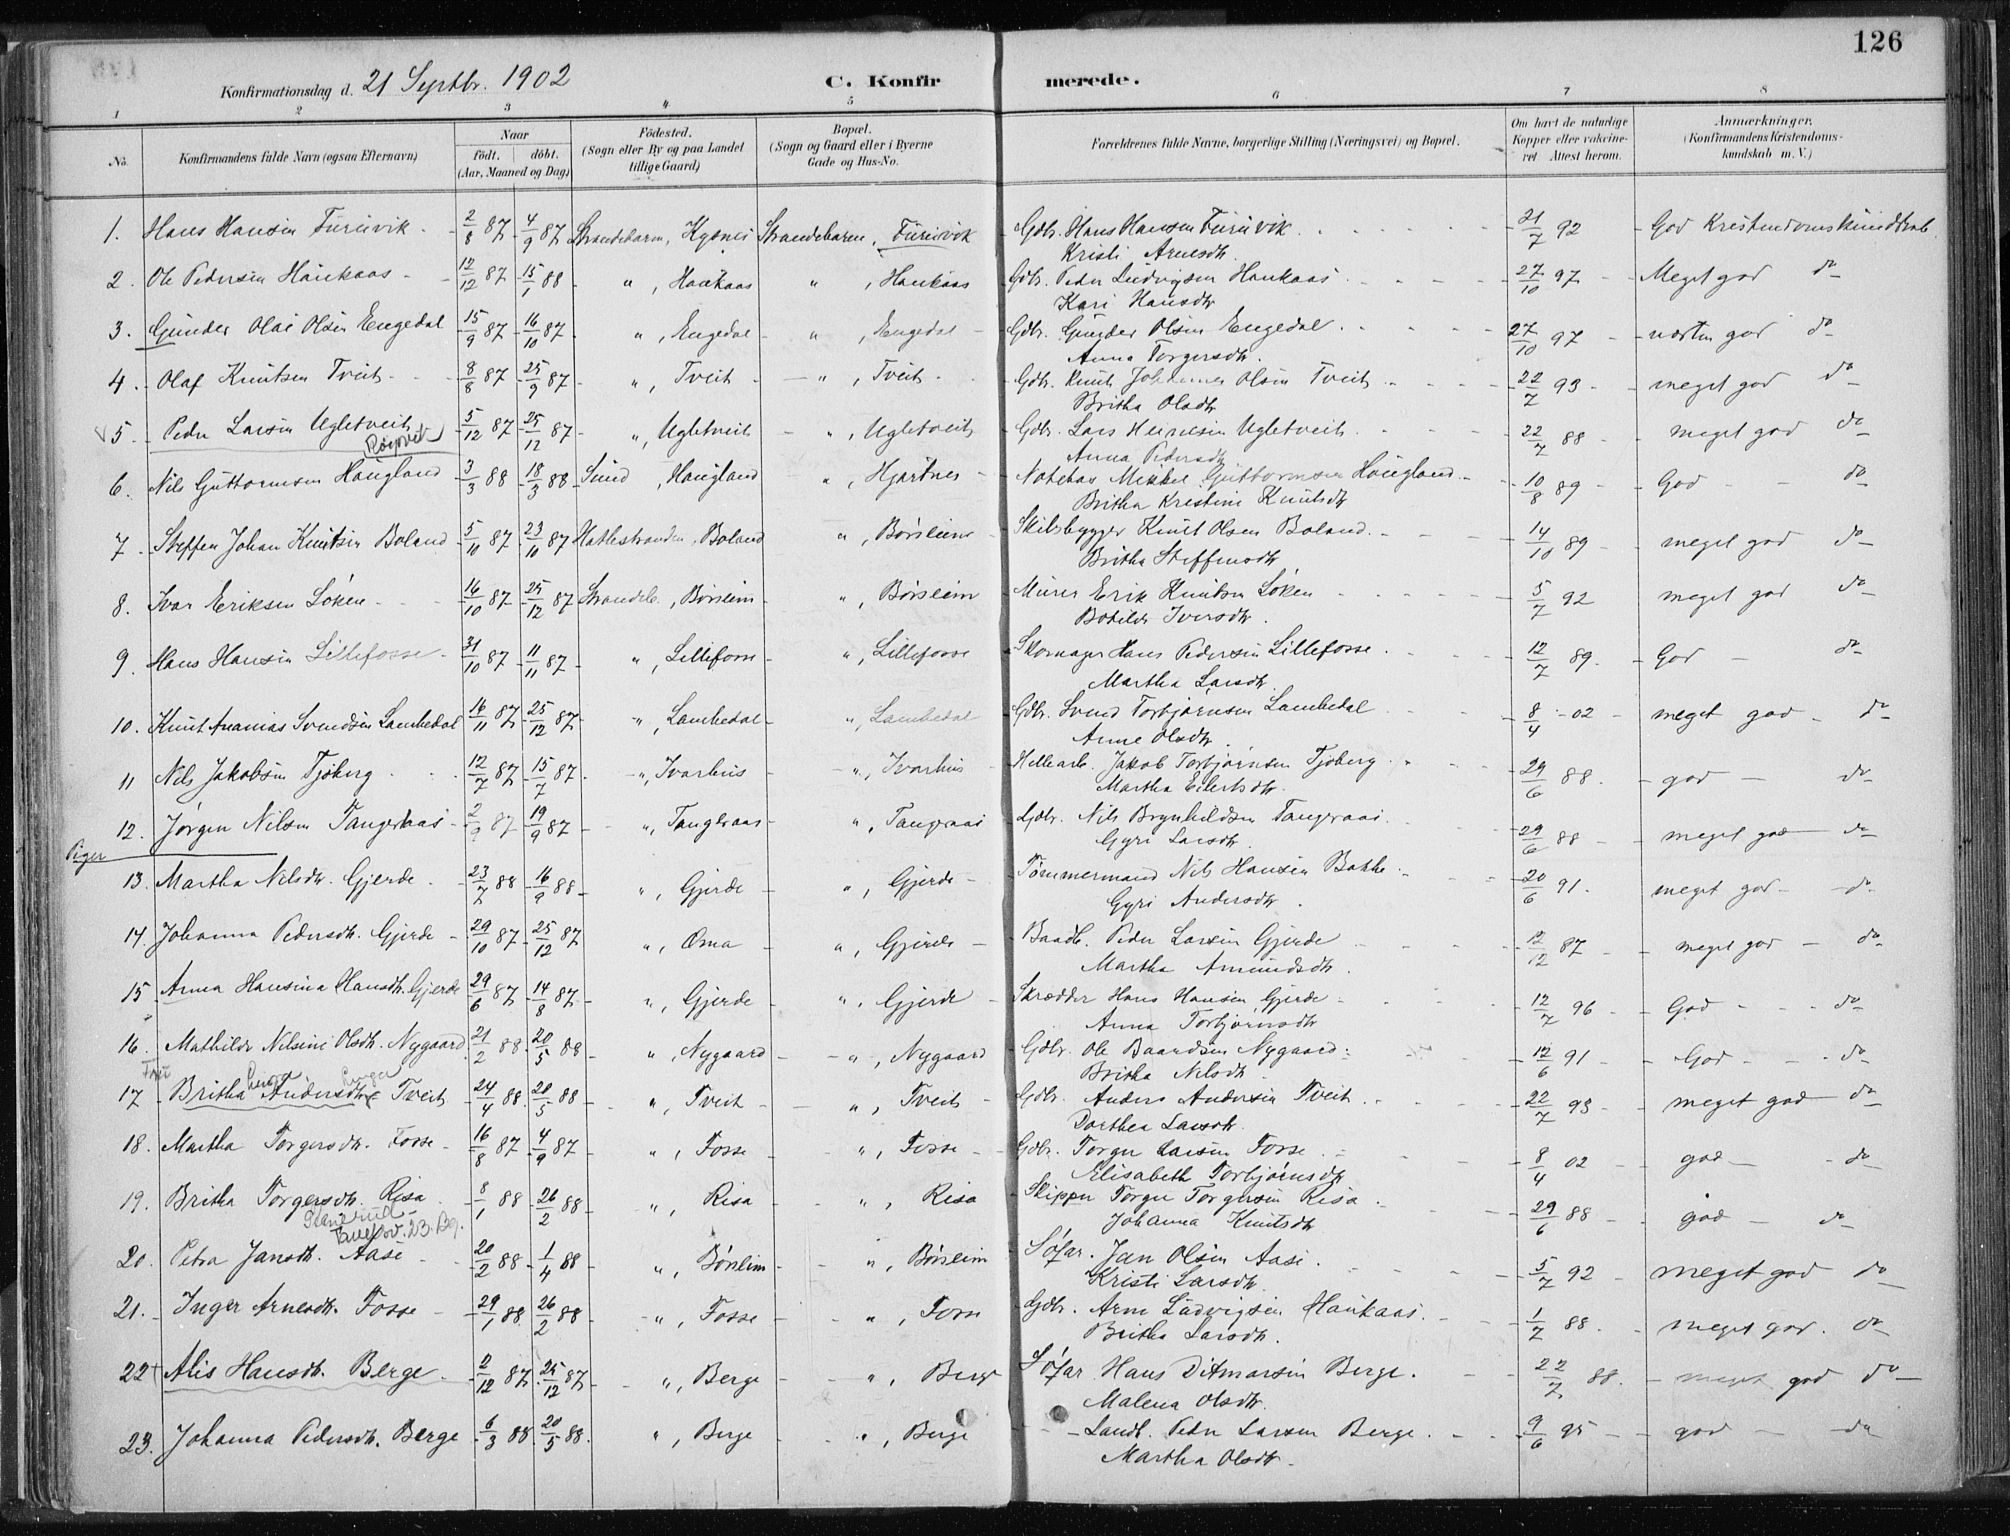 126
Konfirmationsdag d. 21 Septbr. 1902 C. Konfirmerede.
1 2 3 4 5 6 7 8
No. Konfirmandens fulde Navn (ogsaa Efternavn) Naar födt. döbt. (Aar, Maaned og Dag) Födested. (Sogn eller By og paa Landet tillige Gaard) Bopæl. (Sogn og Gaard eller i Byerne Gade og Hus-No. Forældrenes fulde Navne, borgerlige Stilling (Næringsvei) og Bopæl. Om havt de naturlige Kopper eller vakcineret Attest herom. Anmærkninger. (Konfirmandens Kristendomskundskab m. V.)
1. Hans Hansen Furuvik 2/8 87 4/9 87 Strandebarm, Kysnes Strandebarm, Furuvik Gdbr. Hans Hansen Furuvik 21/7 92 God Kristendomskundskab
Kristi Arnesdtr
2. Ole Pedersen Haukaas 12/12 87 15/1 88 ", Haukaas ", Haukaas Gdbr. Peder Ludvigsen Haukaas 27/10 97 Meget god do
Kari Hansdtr
3. Gunder Olai Olsen Engedal 15/9 87 16/10 87 ", Engedal ", Engedal Gdbr. Gunder Olsen Engedal 27/10 97 næsten god do
Anna Torgersdtr.
4. Olaf Knutsen Tveit 8/8 87 25/9 87 ", Tveit ", Tveit Gdbr. Knut Johannes Olsen Tveit 22/7 93 meget god do
Britha Olsdtr
5. Peder Larsen Ugletveit 5/12 87 25/12 87 ", Ugletveit ", Ugletveit Gdbr. Lars Heinesen Ugletveit 22/7 88 meget god do
Anna Pedersdtr
6. Nils Guttormsen Haugland 3/3 88 18/3 88 Sund, Haugland ", Hjartnes Notebas Mikkel Guttormsen Haugland 10/8 89 God do
Britha Kristine Knutsdtr
7. Steffen Johan Knutsen Boland 5/10 87 23/10 87 Hatlestranden, Boland ", Børsleim Skibsbygger Knut Olsen Boland 14/10 89 meget god do
Britha Steffensdtr
8. Ivar Eriksen Løken 16/10 87 25/12 87 Strandeb., Børsleim ", Børsleim Murer Erik Knutsen Løken 5/7 92 meget god do
Botilde Iversdtr.
9. Hans Hansen Lillefosse 31/10 87 11/11 87 ", Lillefosse ", Lillefosse Skomager Hans Pedersen Lillefosse 12/7 89 God do
Martha Larsdtr.
10. Knut Ananias Svendsen Lambedal 16/11 87 25/12 87 ", Lambedal ", Lambedal Gdbr. Svend Torbjørnsen Lambedal 8/4 02 meget god do
Anne Olsdtr.
11 Nils Jakobsen Tjoberg 12/7 87 15/7 87 ", Ivarhus ", Ivarhus Hellearb. Jakob Torbjørnsen Tjoberg 29/6 88 god do
Martha Eilertsdtr.
12. Jørgen Nilsen Tangeraas 2/9 87 19/9 87 ", Tangeraas ", Tangeraas Gdbr. Nils Brynhildsen Tangeraas 29/6 88 meget god do
Gyri Larsdtr.
Piger
13. Martha Nilsdtr. Gjerde 23/7 88 16/9 88 ", Gjerde ", Gjerde Tømmermand Nils Hansen Bakke 20/6 91 meget god do
Gyri Andersdtr.
14. Johanna Pedersdtr. Gjerde 29/10 87 25/12 87 ", Oma ", Gjerde Baadb. Peder Larsen Gjerde 12/12 87 meget god do
Martha Amundsdtr.
15 Anna Hansina Hansdtr. Gjerde 29/6 87 14/8 87 ", Gjerde ", Gjerde Skrædder Hans Hansen Gjerde 12/7 96 God do
Anna Torbjørnsdtr
16. Mathilde Nilsine Olsdtr. Nygaard 21/2 88 20/5 88 ", Nygaard ", Nygaard Gdbr. Ole Baardsen Nygaard 12/6 91 God do
Britha Nilsdtr
17 Britha Andersdtr Tveit 24/4 88 20/5 88 ", Tveit ", Tveit Gdbr. Anders Andersen Tveit 22/7 93 meget god do
Dorthea Larsdtr.
18. Martha Torgersdtr. Fosse 16/8 87 4/9 87 ", Fosse ", Fosse Gdbr. Torger Larsen Fosse 8/4 02 god do
Elisabeth Torbjørnsdtr
19. Britha Torgersdtr. Risa 8/1 88 26/2 88 ", Risa ", Risa Skipper Torger Torgersen Risa 29/6 88 god do
Johanna Knutsdtr
20. Petra Jansdtr. Aase 20/2 88 1/4 88 ", Børsleim ", Børsleim Søfar. Jan Olsen Aase 5/7 92 meget god do
Kristi Larsdtr.
21. Inger Arnesdtr. Fosse 29/1 88 26/2 88 ", Fosse ", Fosse Gdbr. Arne Ludvigsen Haukaas 1/7 88 meget god do
Britha Larsdtr.
22 Alis Hansdtr. Berge 2/12 87 25/12 87 ", Berge ", Berge Søfar Hans Ditmarsen Berge 22/7 88 meget god do
Malena Olsdtr.
23. Johanna Pedersdtr. Berge 6/3 88 20/5 88 ", Berge ", Berge Landb. Peder Larsen Berge 9/6 95 god do
Martha Olsdtr